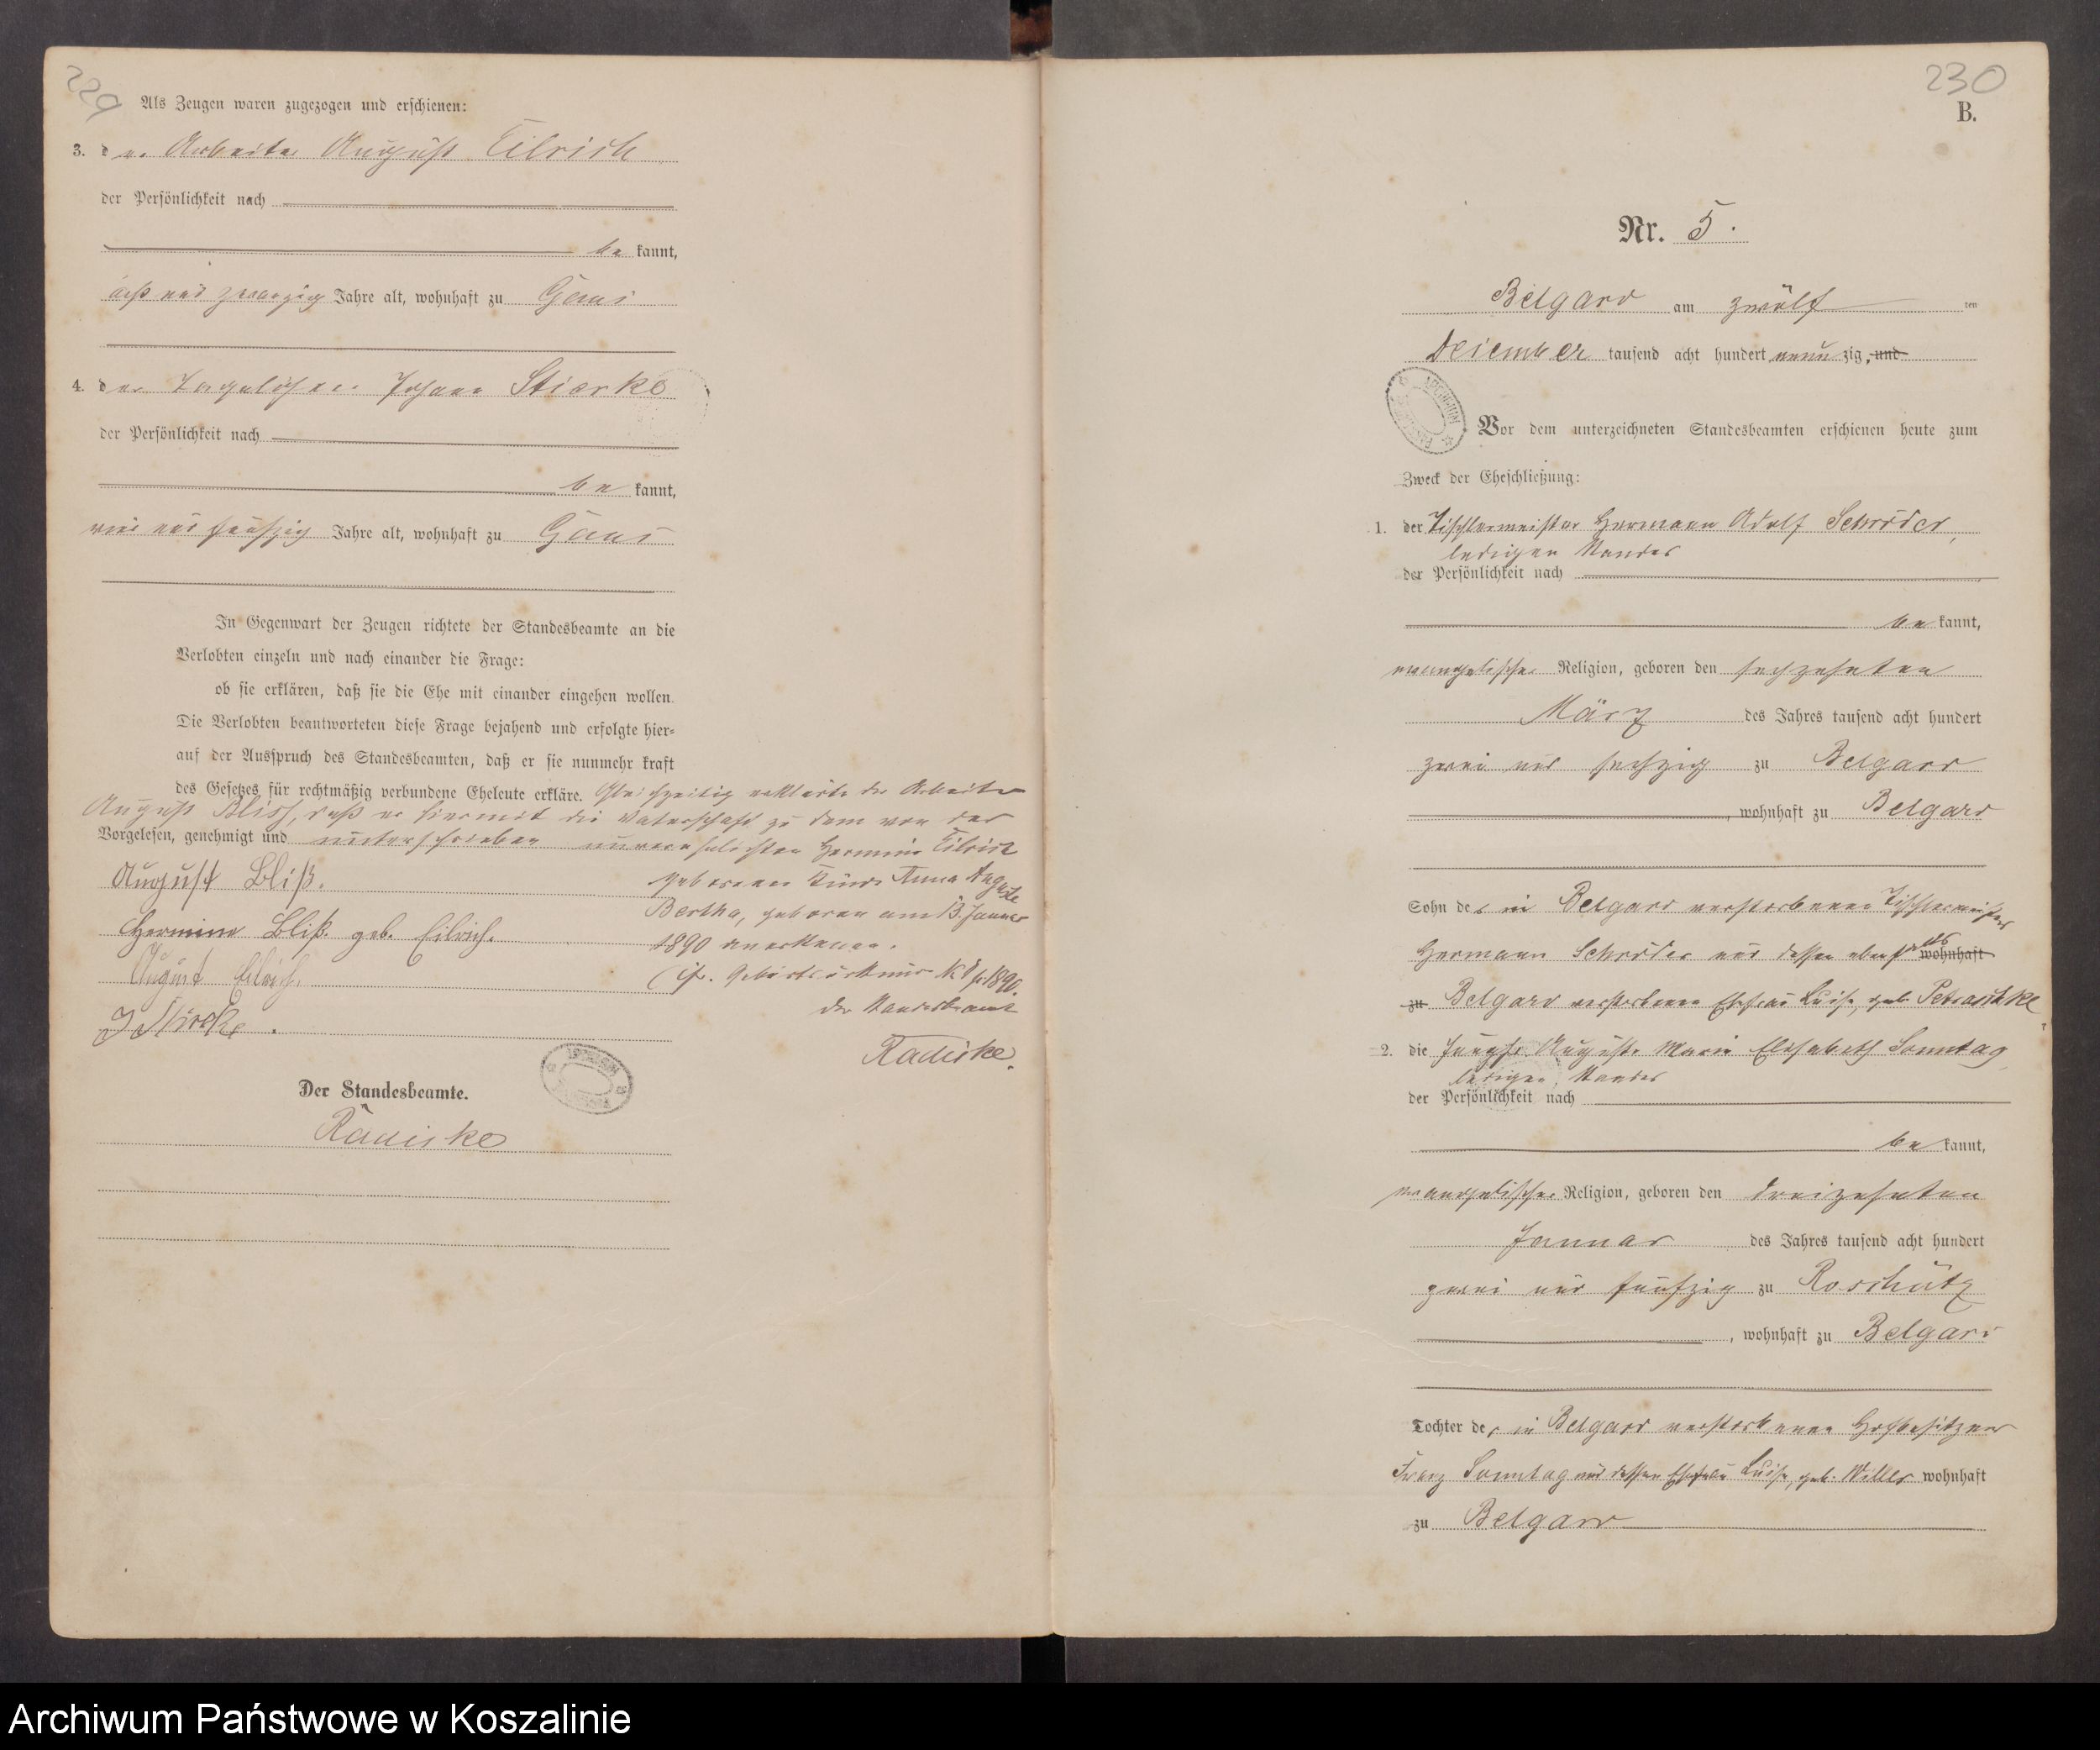 229
Als Zeugen waren zugezogen und erschienen:
3. der Arbeiter August Eilrich
der Persönlichkeit nach
be kannt,
acht und zwanzig Jahre alt, wohnhaft zu Gans
4. der Tagelöhner Johann Stierke
der Persönlichkeit nach
be kannt,
vier und fünfzig Jahre alt, wohnhaft zu Gans
In Gegenwart der Zeugen richtete der Standesbeamte an die
Verlobten einzeln und nach einander die Frage:
ob sie erklären, daß sie die Ehe mit einander eingehen wollen.
Die Verlobten beantworteten diese Frage bejahend und erfolgte hier-
auf der Ausspruch des Standesbeamten, daß er sie nunmehr kraft
des Gesetzes für rechtmäßig verbundene Eheleute erkläre. Gleichzeitig erklärte der Arbeiter
August Bliss, daß er hiermit die Vaterschaft zu dem von der
Vorgelesen, genehmigt und unterschrieben unverehelichten Hermine Eilrich
August Bliß. geborenen Kinde Anna Auguste
Bertha, geboren am 13. Januar
Hermine Bliß geb. Eilrich.
1890 anerkenne.
August Eilrich.
(cf. Geburtsurkunde N 8 p. 1890.
Der Standesbeamte
J Stircke.
Radiske.
Der Standesbeamte.
Radiske
230
B.
Nr. 5.
Belgard am zwölf ten
Dezember tausend acht hundert neun zig, und
Vor dem unterzeichneten Standesbeamten erschienen heute zum
Zweck der Eheschließung:
1. der Tischlermeister Hermann Adolf Schröder,
ledigen Standes
der Persönlichkeit nach
be kannt,
evangelischer Religion, geboren den sechzehnten
März des Jahres tausend acht hundert
zwei und sechzig zu Belgard
, wohnhaft zu Belgard
Sohn des in Belgard verstorbenen Tischlermeisters
Hermann Schröder und dessen ebenfalls wohnhaft
zu Belgard verstorbenen Ehefrau Luise, geb. Petraschke
2. die Jungfr. Auguste Marie Elisabeth Sonntag
ledigen Standes
der Persönlichkeit nach
be kannt,
evangelischer Religion, geboren den dreizehnten
Januar des Jahres tausend acht hundert
zwei und fünfzig zu Roschütz
, wohnhaft zu Belgard
Tochter des in Belgard verstorbenen Hofbesitzers
Franz Sonntag und dessen Ehefrau Luise, geb. Willer wohnhaft
zu Belgard
Archiwum Państwowe w Koszalinie